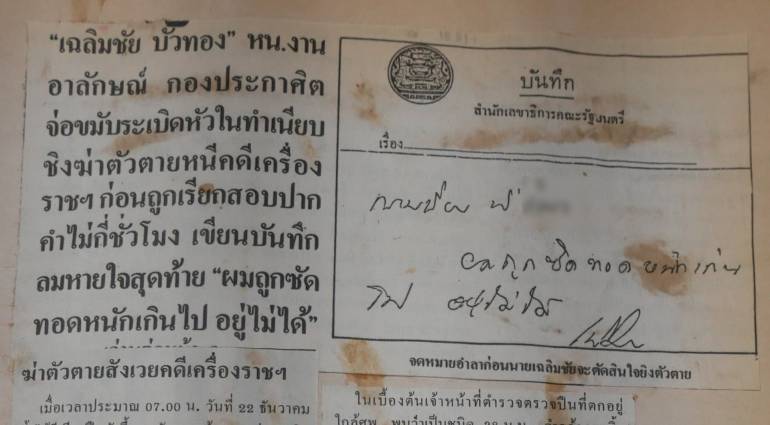 “เฉลิมชัย บัวทอง” หน.งาน
อาลักษณ์ กองประกาศิต
จ่อขมับระเบิดหัวในทำเนียบ
ชิงฆ่าตัวตายหนีคดีเครื่อง
ราชฯ ก่อนถูกเรียกสอบปาก
คำไม่กี่ชั่วโมง เขียนบันทึก
ลมหายใจสุดท้าย “ผมถูกซัด
ทอดหนักเกินไป อยู่ไม่ได้”
ฆ่าตัวตายสังเวยคดีเครื่องราชฯ
เมื่อเวลาประมาณ 07.00 น. วันที่ 22 ธันวาคม
บันทึก
สำนักเลขาธิการคณะรัฐมนตรี
เรื่อง
ผมถูกซัดทอดหนักเกิน
ไป อยู่ไม่ได้
จดหมายอำลาก่อนนายเฉลิมชัยจะตัดสินใจยิงตัวตาย
ในเบื้องต้นเจ้าหน้าที่ตำรวจตรวจปืนที่ตกอยู่
ใกล้ศพ พบว่าเป็นชนิด